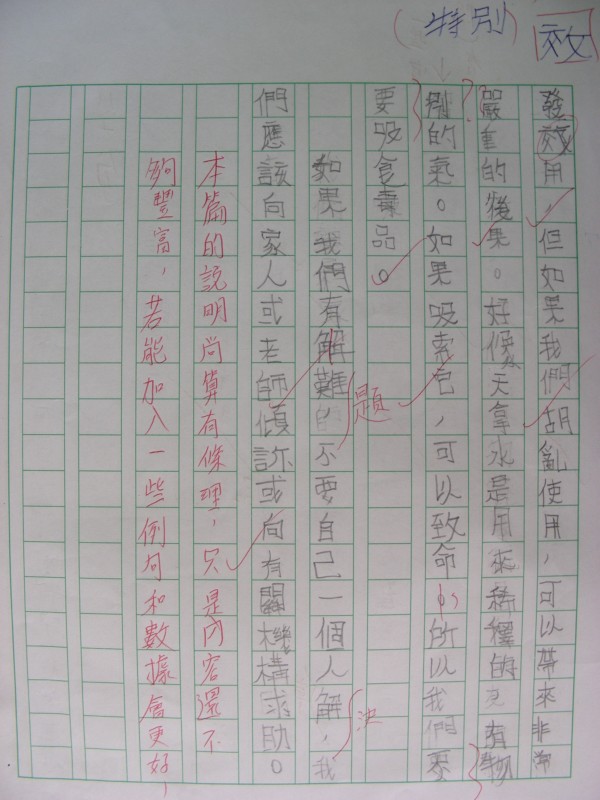 效
(特別)
發效用，但如果我們胡亂使用，可以帶來非常
嚴重的後果。好候天拿水是用來稀釋的，有物
別的氣。如果吸索它，可以致命的所以我們不
要吸食毒品。
如果我們有解難的不要自己一個人解，我
題
決
們應該向家人或老師傾訴或向有關機構求助。
本篇的說明尚算有條理，只是內容還不
夠豐富，若能加入一些例句和數據會更好，